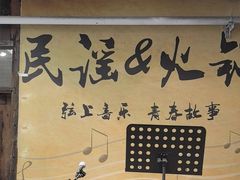 民谣&火
弦上音乐 青春故事